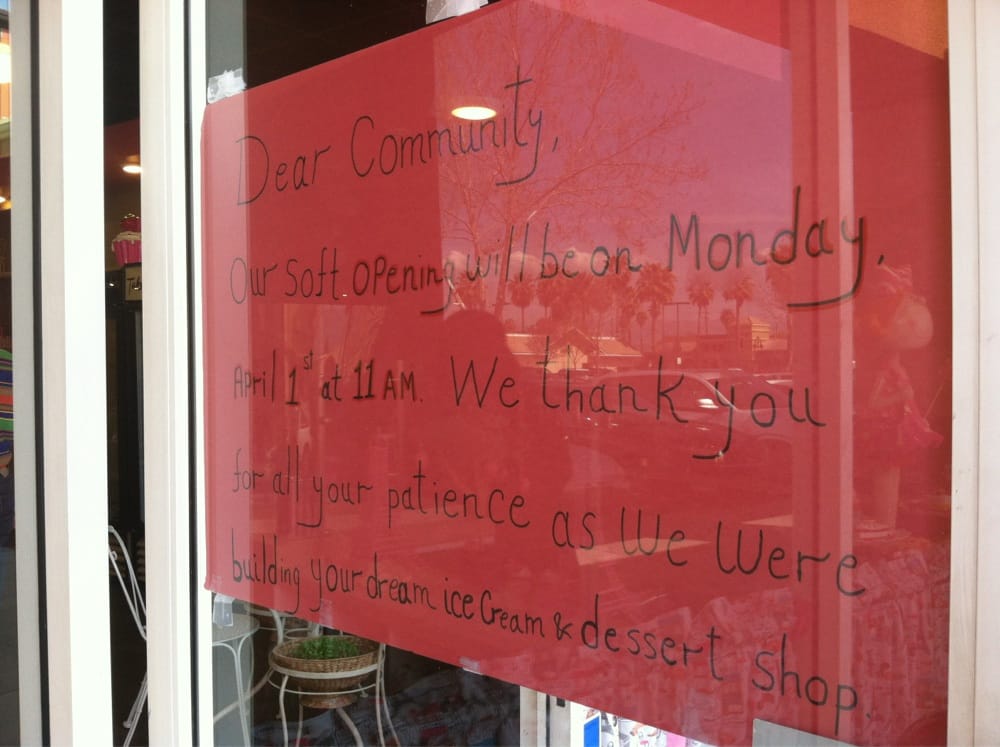 Dear Community,
Our soft opening will be on Monday,
April 1st at 11 AM. We thank you
for all your patience as we were
building your dream ice cream & dessert shop.